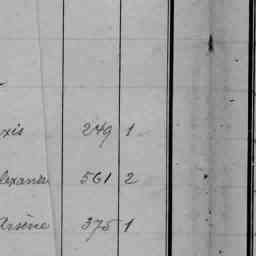 exis 249 1
lexandre 561 2
Arsène 375 1